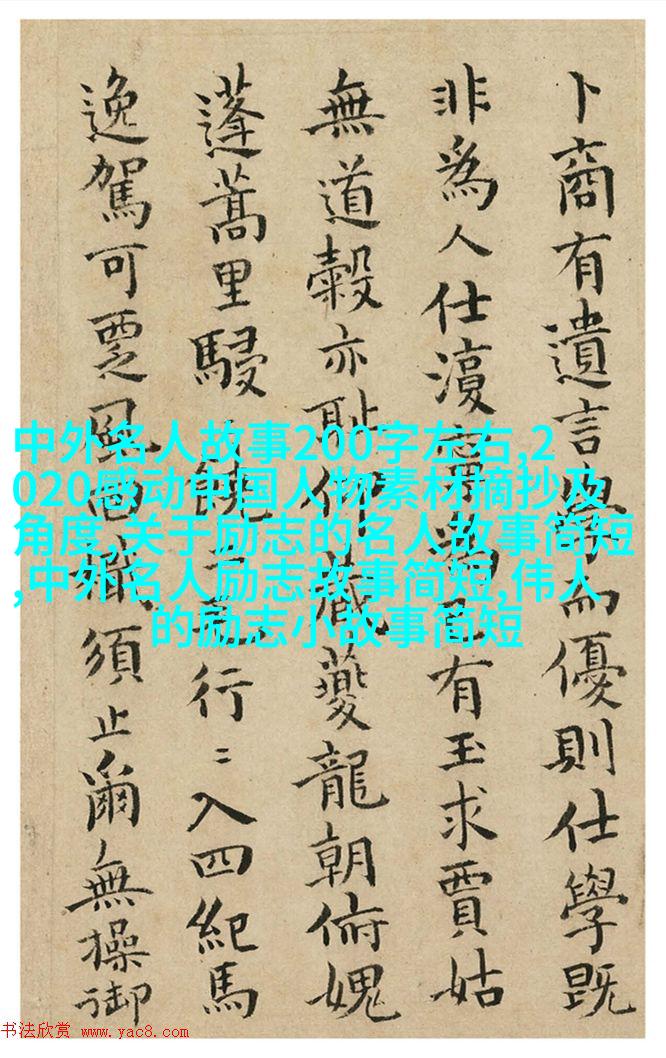 卜商有遺言學而優則仕學既
非為人仕為己有玉求賈姑
無道穀亦恥仰夔龍朝俯媿
蓬蒿里駸行〻入四紀馬
逸駕可覂風須止爾無操御
中外名人故事200字左右,2
020感动中国人物素材摘抄及
角度,关于励志的名人故事简短
,中外名人励志故事简短,伟人
的励志小故事简短
书法欣赏 www.yac8.com